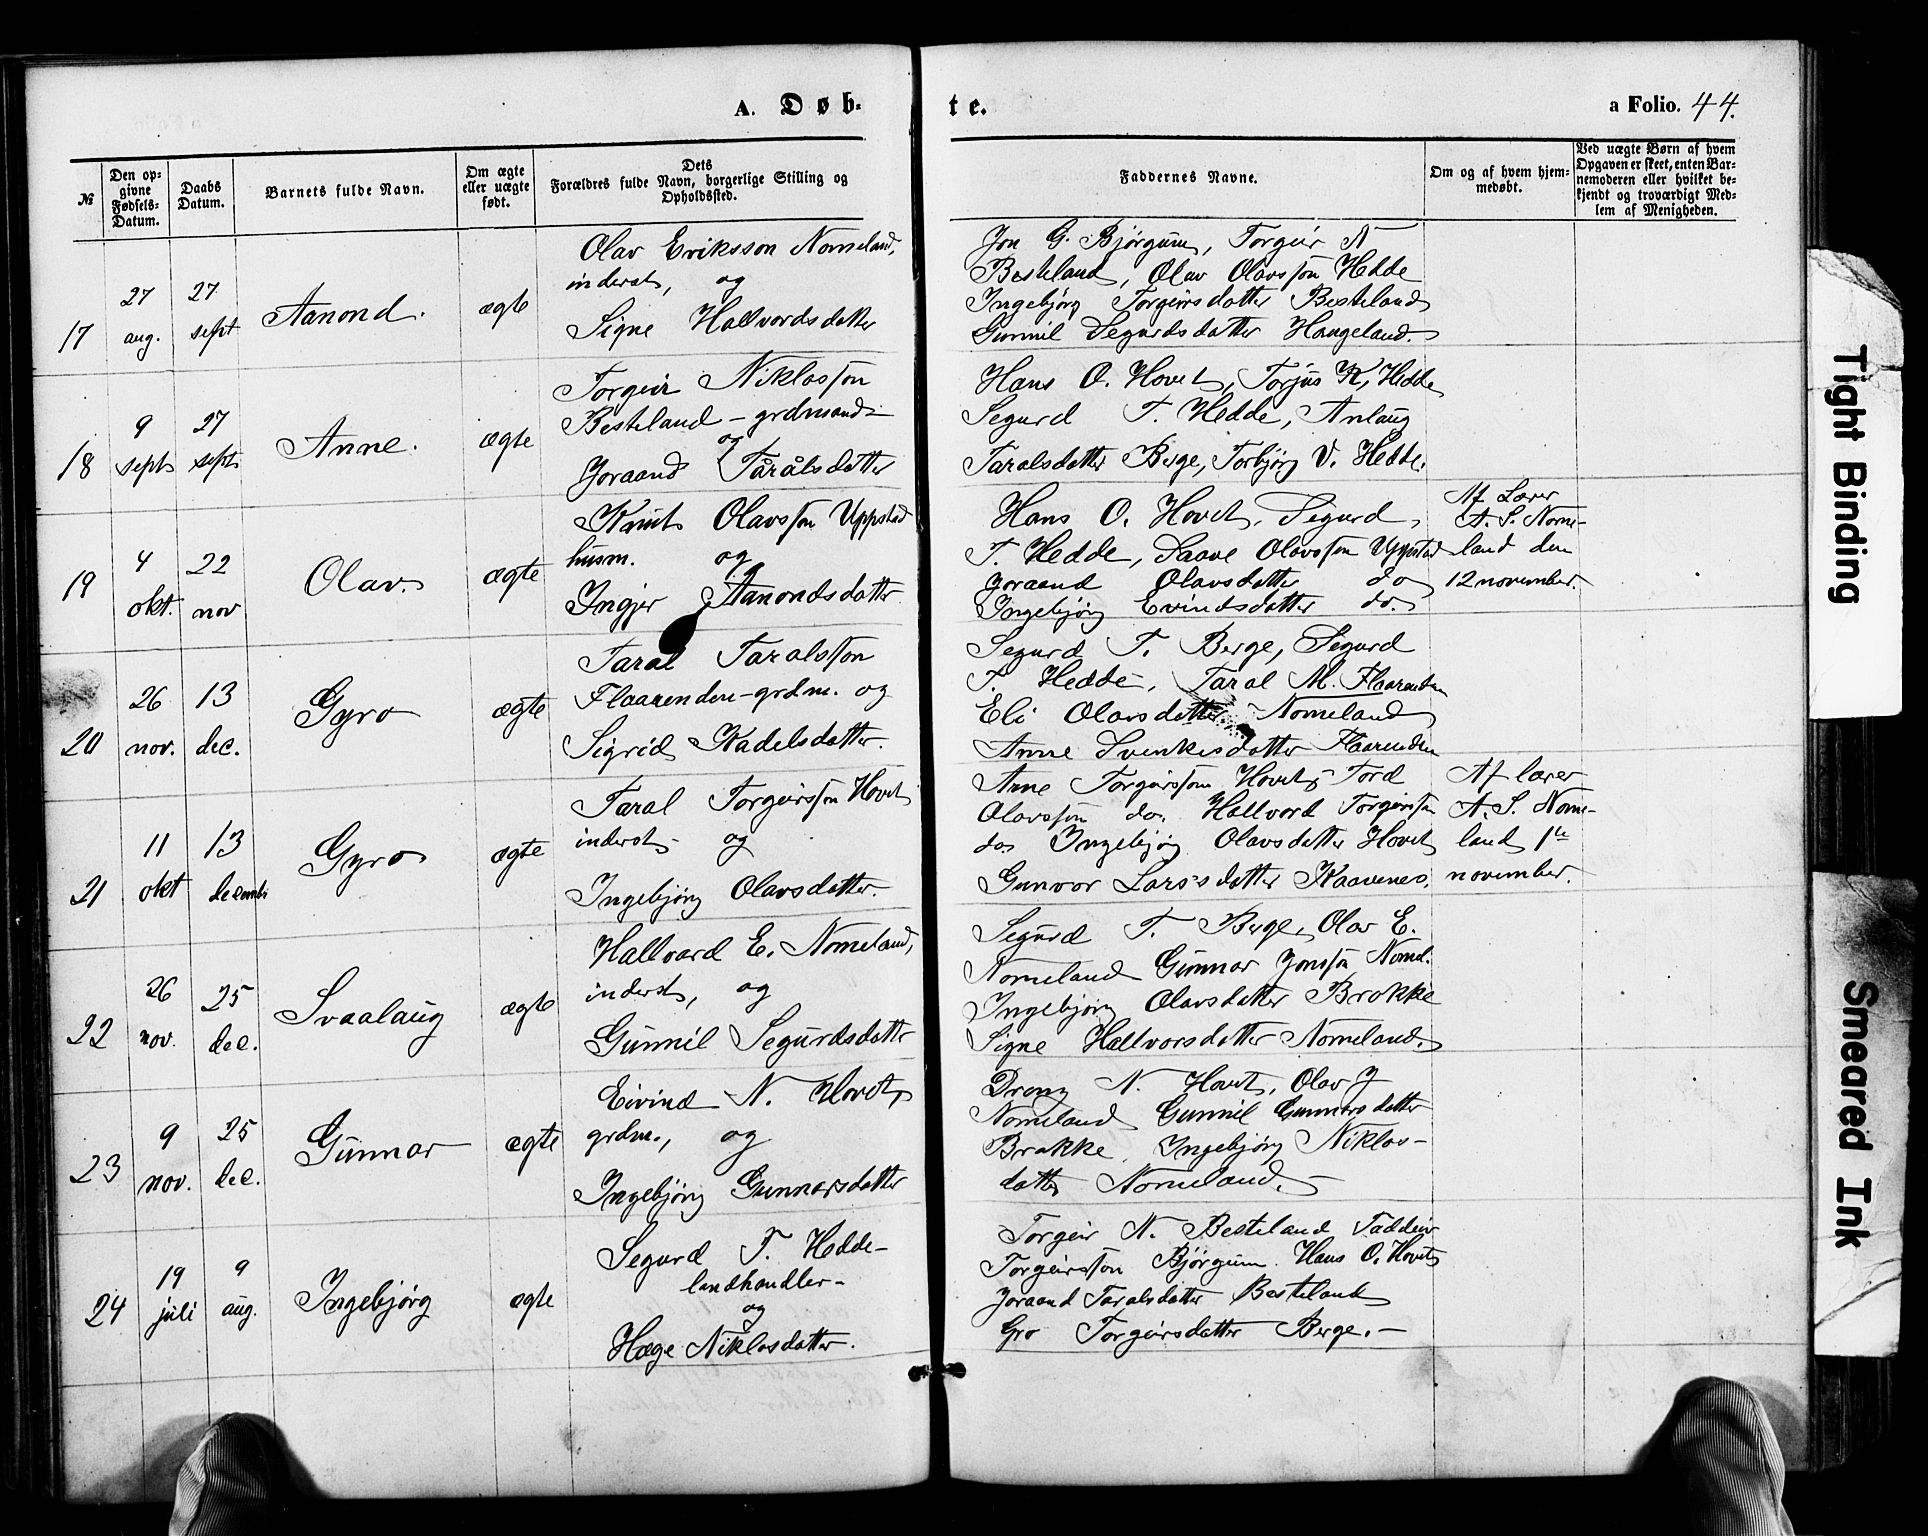 A. Døb-
te.
a Folio. 44.
№
Den op-
givne
Fødsels-
Datum.
Daabs
Datum.
Barnets fulde Navn.
Om ægte
eller uægte
født.
Dets
Forældres fulde Navn, borgerlige Stilling og
Opholdssted.
Faddernes Navne.
Om og af hvem hjem-
medøbt.
Ved uægte Børn af hvem
Opgaven er skeet, enten Bar-
nemoderen eller hvilket be-
kjendt og troværdigt Med-
lem af Menigheden.
17
27
aug.
27
sept
Aanond.
ægte
Olav Eriksson Nomeland,
inderst, og
Signe Hallvordsdatter
Jon G. Bjørgum, Torgeir N
Besteland, Olav Olavsson Hedde
Ingebjörg Torgeirsdatter Besteland
Gunnil Segurdsdatter Haugeland.
18
9
sept
27
sept
Anne.
ægte
Torgeir Niklosson
Besteland - grdmand
og
Joraand Tårålsdatter
Hans O. Hovet, Torjus K. Hedde
Segurd T. Hedde, Anlaug
Taralsdatter Berge, Torbjörg V. Hedde.
19
4
okt.
22
nov
Olav.
ægte
Knut Olavsson Uppstad
husm. og
Ingjer Aanondsdatter
Hans O. Hovet, Segurd
T. Hedde, Saave Olavsson Uppstad
Joraand Olavsdatter do
Ingebjörg Evindsdatter do.
Af Lærer
A. S. Nome-
land den
12 november.
20
26
nov.
13
dec.
Gyro
ægte
Taral Taralsson
Flaarenden - grdm. og
Sigrid Kadelsdatter.
Segurd T. Berge, Segurd
T. Hedde, Taral M. Flaarenden
Eli Olavsdatter Nomeland
Anne Svenkesdatter Flaarenden
21
11
okt
13
decembr
Gyro
ægte
Taral Torgeirsson Hovet
inderst - og
Ingebjörg Olavsdatter.
Arne Torgeirsson Hovet, Tord
Olavsson do. Hallvord Torgeirsson
do. Ingebjörg Olavsdatter Hovet
Gunvor Larsdatter Kaavenes.
Af lærer
A. S. Nome-
land 1te
november.
22
26
nov.
25
dec.
Svaalaug
ægte
Hallvard E. Nomeland,
inderst, og
Gunnil Segurdsdatter
Segurd T. Berge, Olav E.
Nomeland Gunnar Jonsson Nomel.
Ingebjörg Olavsdatter Brokke
Signe Hallvorsdatter Nomeland.
23
9
nov.
25
dec.
Gunnar
ægte
Eivind N. Hovet,
grdm., og
Ingebjörg Gunnarsdatter
Drong N. Hovet, Olav J
Nomeland Gunnil Gunnarsdatter
Brokke, Ingebjörg Niklos-
datter Nomeland.
24
19
juli
9
aug.
Ingebjørg
ægte
Segurd T. Hedde -
landhandler -
og
Hæge Niklosdatter.
Torgeir N. Besteland Taddeiv
Torgeirsson Bjørgum. Hans O. Hovet
Joraand Taralsdatter Besteland
Gro Torgeirsdatter Berge. -
Tight Binding
Smeared Ink